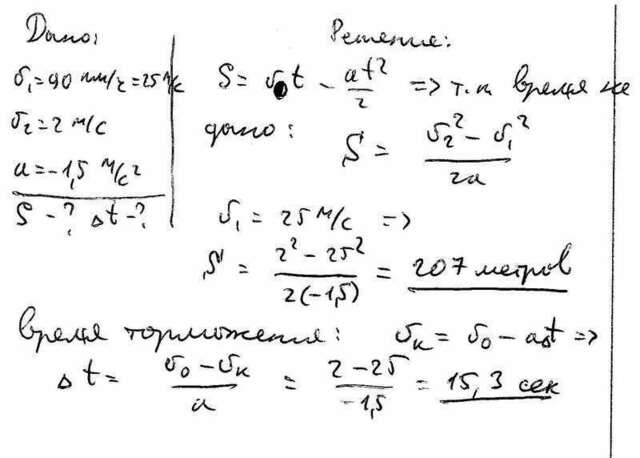 Дано:
υ₁ = 90 км/ч = 25 м/с
υ₂ = 2 м/с
a = -1,5 м/с²
S - ? Δt - ?
Решение:
S = υ₀t - at²/2 => т.к время не
дано: S = (υ₂² - υ₁²)/2a
υ₁ = 25 м/с =>
S = (2² - 25²)/2(-1,5) = 207 метров
время торможения: υк = υ₀ - aΔt =>
Δt = (υ₀ - υк)/a = (2 - 25)/-1,5 = 15,3 сек